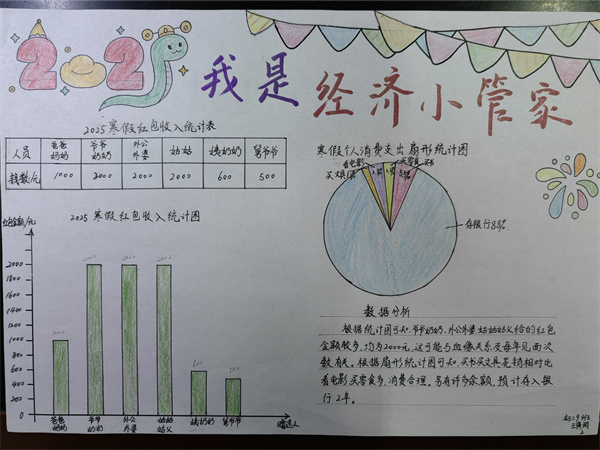 2025
我是
经济小管家
2025寒假红包收入统计表
人员 爸爸妈妈 爷爷奶奶 外公外婆 姑姑 姨奶奶 舅爷爷
钱数/元 1000 2000 2000 2000 600 500
2025寒假红包收入统计图
红包金额/元
2000
1800
1600
1400
1200
1000
800
600
400
200
0
2000 2000 2000
1000
600
500
爷爷奶奶 外公外婆 姑姑姑父 姨奶奶 舅爷爷
赠送人
寒假个人消费支出扇形统计图
看电影
存银行88%
数据分析
根据统计图可知,爷爷奶奶,外公外婆,姑姑姑父给的红包
金额较多,均为2000元,这可能与血缘关系及每年见面次
数有关。根据扇形统计图可知,买书买文具花销相对比
看电影买零食多,消费合理。另有许多余额,预计存入银
行2年。